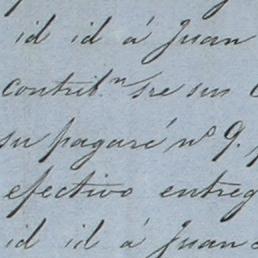 id id á Juan
contribn. sre sus
su pagaré no 9.
efectivo entreg
id id á Juan